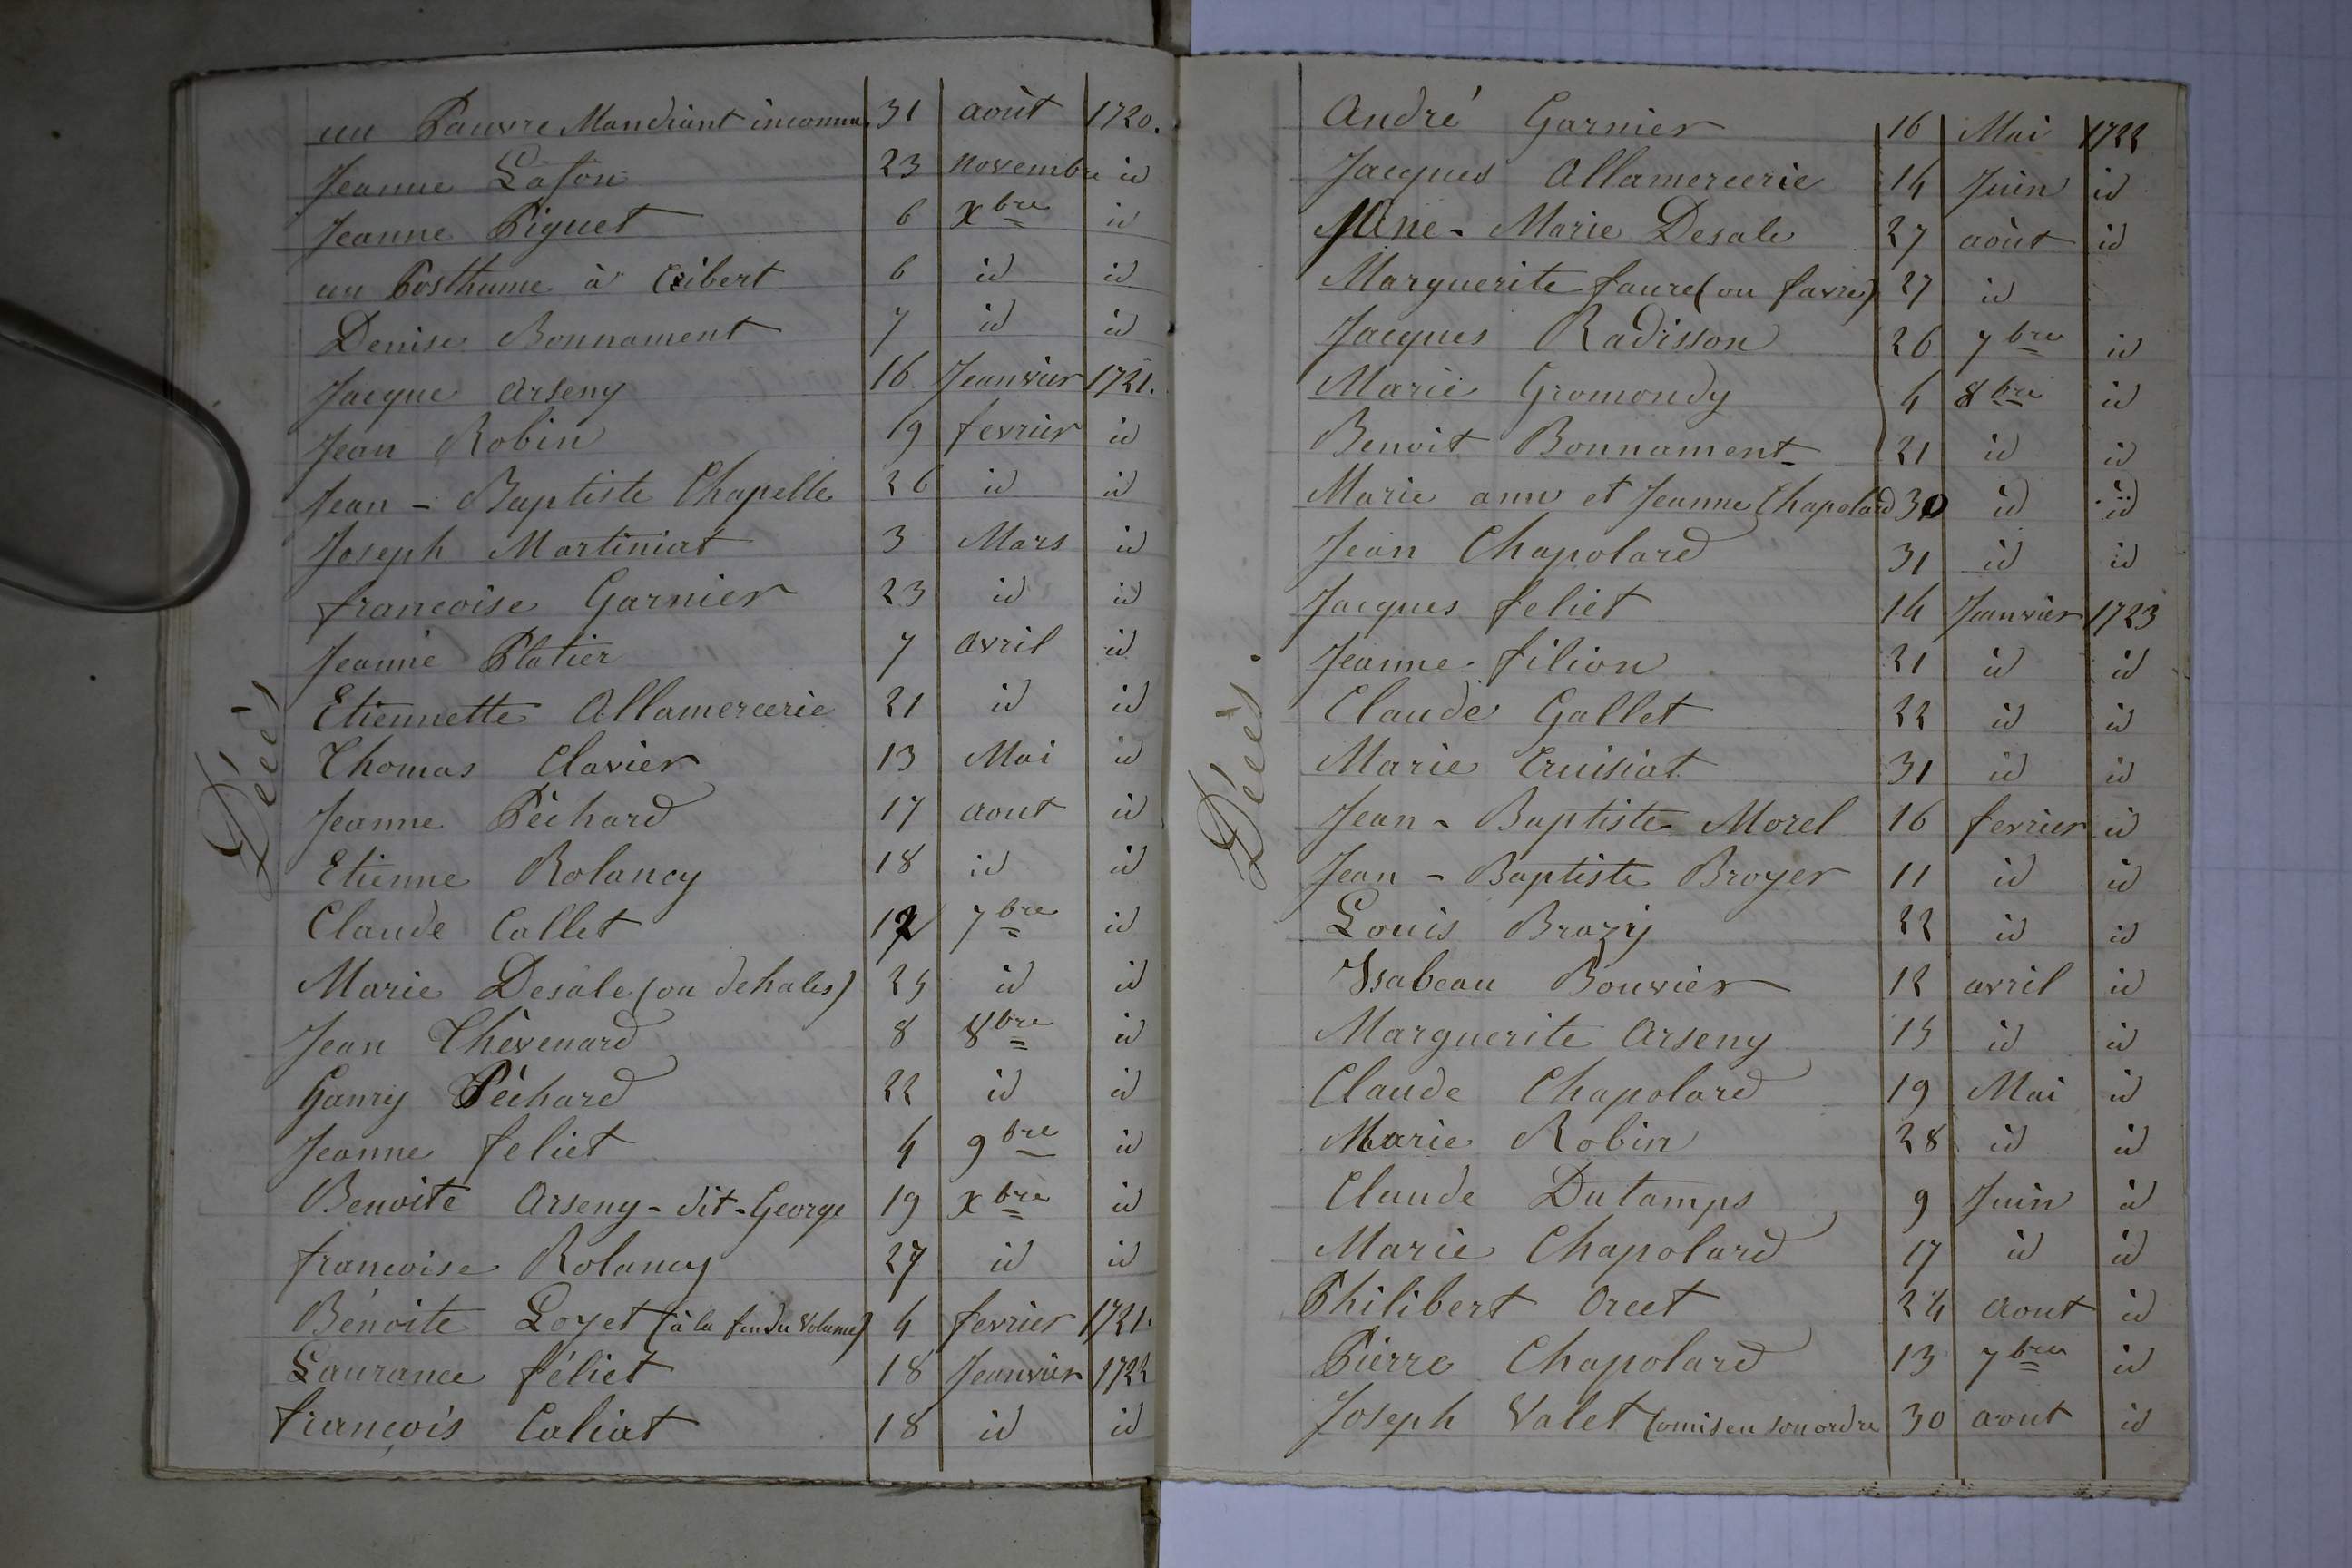 un Pauvre Mandiant inconnu. 31 août 1720.
Jeanne Lafon 23 novembre id
Jeanne Piguet 6 xbre id
un Posthume à Cribert 6 id id
Denise Bonnament 7 id id
Jacque Arseny 16 Jeanvier 1721.
Jean Robin 19 fevrier id
Jean - Baptiste Chapelle 26 id id
Joseph Martiniat 3 Mars id
francoise Garnier 23 id id
Jeanne Platier 7 avril id
Etiennette Allamercerie 21 id id
Thomas Clavier 13 Mai id
Jeanne Péchard 17 aout id
Etienne Rolancy 18 id id
Claude Collet 12 7bre id
Marie Desale (ou dehales) 25 id id
Jean Thévenard 8 8bre id
Ganry Péchard 22 id id
Jeanne feliet 4 9bre id
Benoite Arseny - dit - George 19 xbre id
francoise Rolancy 27 id id
Bénoite Loyet (à la fin du volume) 4 fevrier 1721.
Laurance féliet 18 Jeanvier 1722
françois Caliat 18 id id
Décès
André Garnier 16 Mai 1722
Jacques Allamercerie 14 Juin id
Anne - Marie Desale 27 août id
Marguerite faure (ou favre) 27 id
Jacques Radisson 26 7bre id
Marie Gromondy 4 8bre id
Benoit Bonnament 21 id id
Marie ann et Jeanne Chapolard 30 id id
Jean Chapolard 31 id id
Jacques feliet 14 Jeanvier 1723
Jeanne filion 21 id id
Claude Gallet 22 id id
Marie Cruisiat 31 id id
Jean - Baptiste Morel 16 fevrier id
Jean - Baptiste Broyer 11 id id
Louis Brazy 22 id id
Isabeau Bouvier 12 avril id
Marguerite Arseny 15 id id
Claude Chapolard 19 Mai id
Marie Robin 28 id id
Claude Dutamps 9 Juin id
Marie Chapolard 17 id id
Philibert Orcet 24 Aout id
Pierre Chapolard 13 7bre id
Joseph Valet (omis en son ordre 30 aout id
Décès.